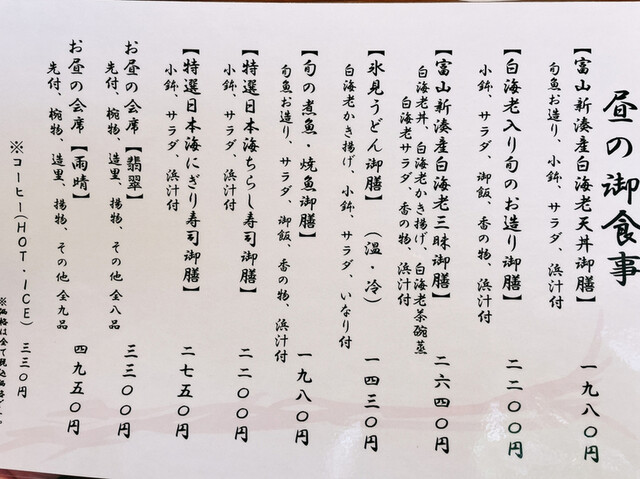 昼の御食事
【富山新湊産白海老天丼御膳】 一九八〇円
旬魚お造り、小鉢、サラダ、浜汁付
【白海老入り旬のお造り御膳】 二二〇〇円
小鉢、サラダ、御飯、香の物、浜汁付
【富山新湊産白海老三昧御膳】 二六四〇円
白海老丼、白海老かき揚げ、白海老茶碗蒸
白海老サラダ、香の物、浜汁付
【氷見うどん御膳】(温・冷) 一四三〇円
白海老かき揚げ、小鉢、サラダ、いなり付
【旬の煮魚・焼魚御膳】 一九八〇円
旬魚お造り、サラダ、御飯、香の物、浜汁付
【特選日本海ちらし寿司御膳】 二二〇〇円
小鉢、サラダ、浜汁付
【特選日本海にぎり寿司御膳】 二七五〇円
小鉢、サラダ、浜汁付
お昼の会席【翡翠】 三三〇〇円
先付、椀物、造里、揚物、その他 全八品
お昼の会席【雨晴】 四九五〇円
先付、椀物、造里、揚物、その他 全九品
※コーヒー(HOT・ICE) 三三〇円
※価格は全て税込価格